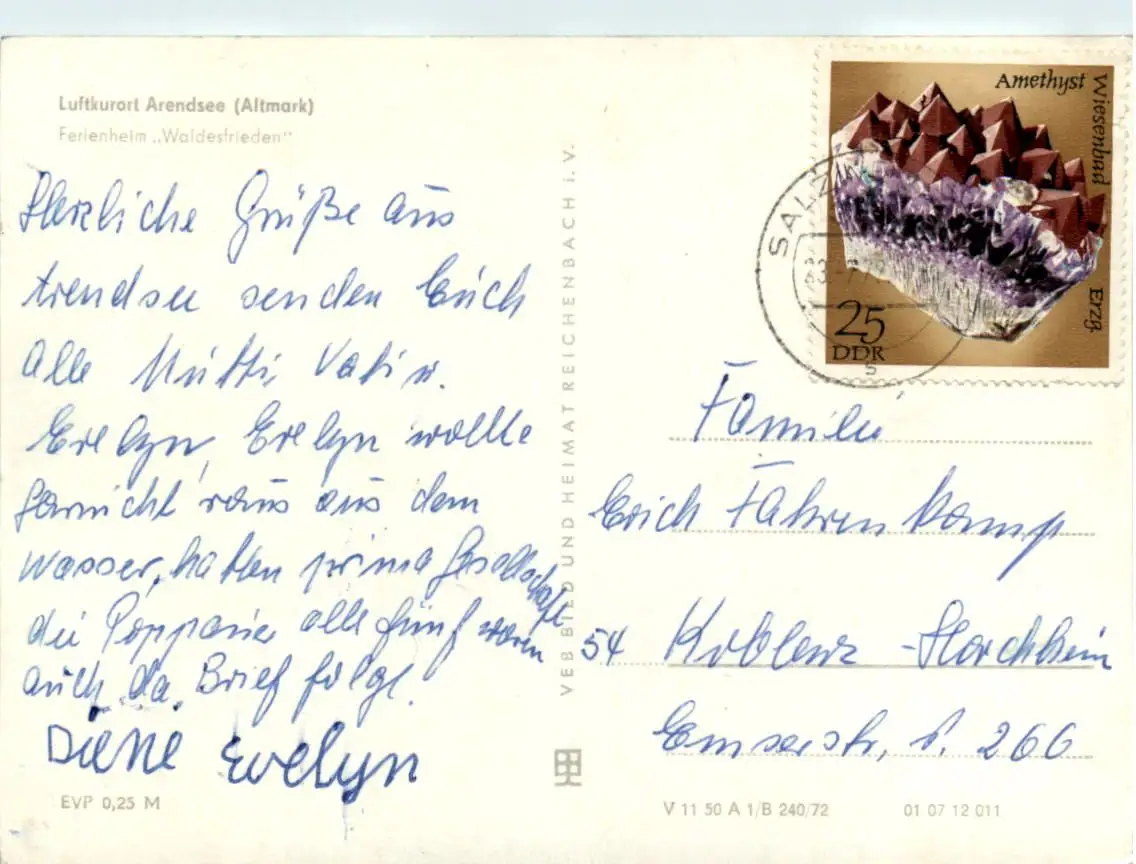 Luftkurort Arendsee (Altmark)
Ferienheim „Waldesfrieden"
Herzliche Grüße aus
Arendsee senden Euch
alle Mutti Vati u.
Evelyn, Evelyn wollte
garnicht raus aus dem
wasser, hatten prima Gesellschaft
die alle fünf waren
auch da. Brief folgt.
Evelyn
EVP 0,25 M
VEB BILD UND HEIMAT REICHENBACH i. V.
Amethyst
Wiesenbad
Erzg.
25
DDR
SALZ
Familie
Erich Fahrenkamp
54 Koblenz-Horchheim
Emserstr. 266
V 11 50 A 1/B 240/72
01 07 12 011